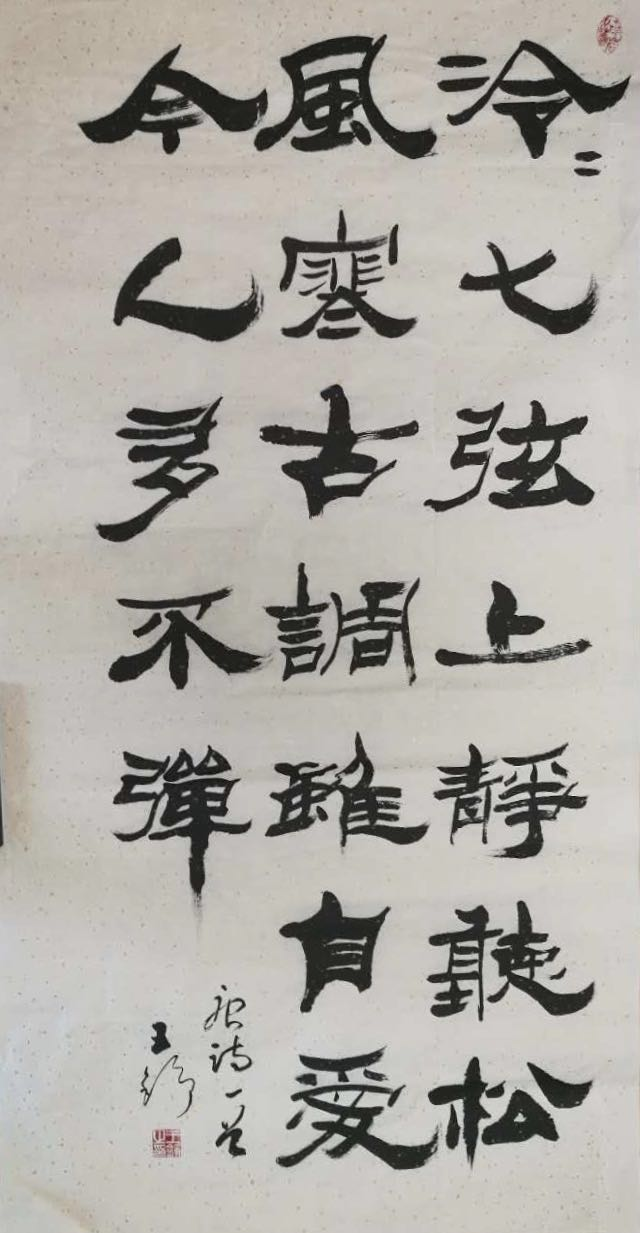 泠〻七弦上靜聽松
風寒古調雖自愛
今人多不彈
唐詩一首
王